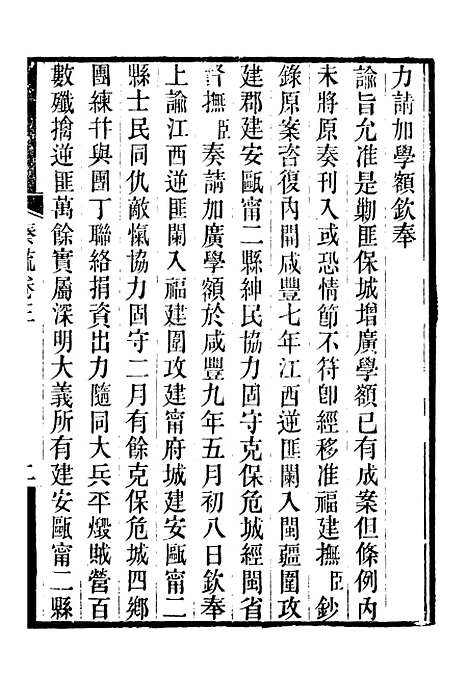 力請加學額欽奉
諭旨允准是勦匪保城增廣學額已有成案但條例內
未將原奏刊入或恐情節不符卽經移准福建撫臣鈔
錄原案咨復內開咸豐七年江西逆匪闌入閩疆圍攻
建郡建安甌甯二縣紳民協力固守克保危城經閩省
督撫臣奏請加廣學額於咸豐九年五月初八日欽奉
上諭江西逆匪闌入福建圍攻建甯府城建安甌甯二
縣士民同仇敵愾協力固守二月有餘克保危城四鄉
團練幷與團丁聯絡捐資出力隨同大兵平燬賊營百
數殲擒逆匪萬餘實屬深明大義所有建安甌甯二縣
奏疏卷三
二